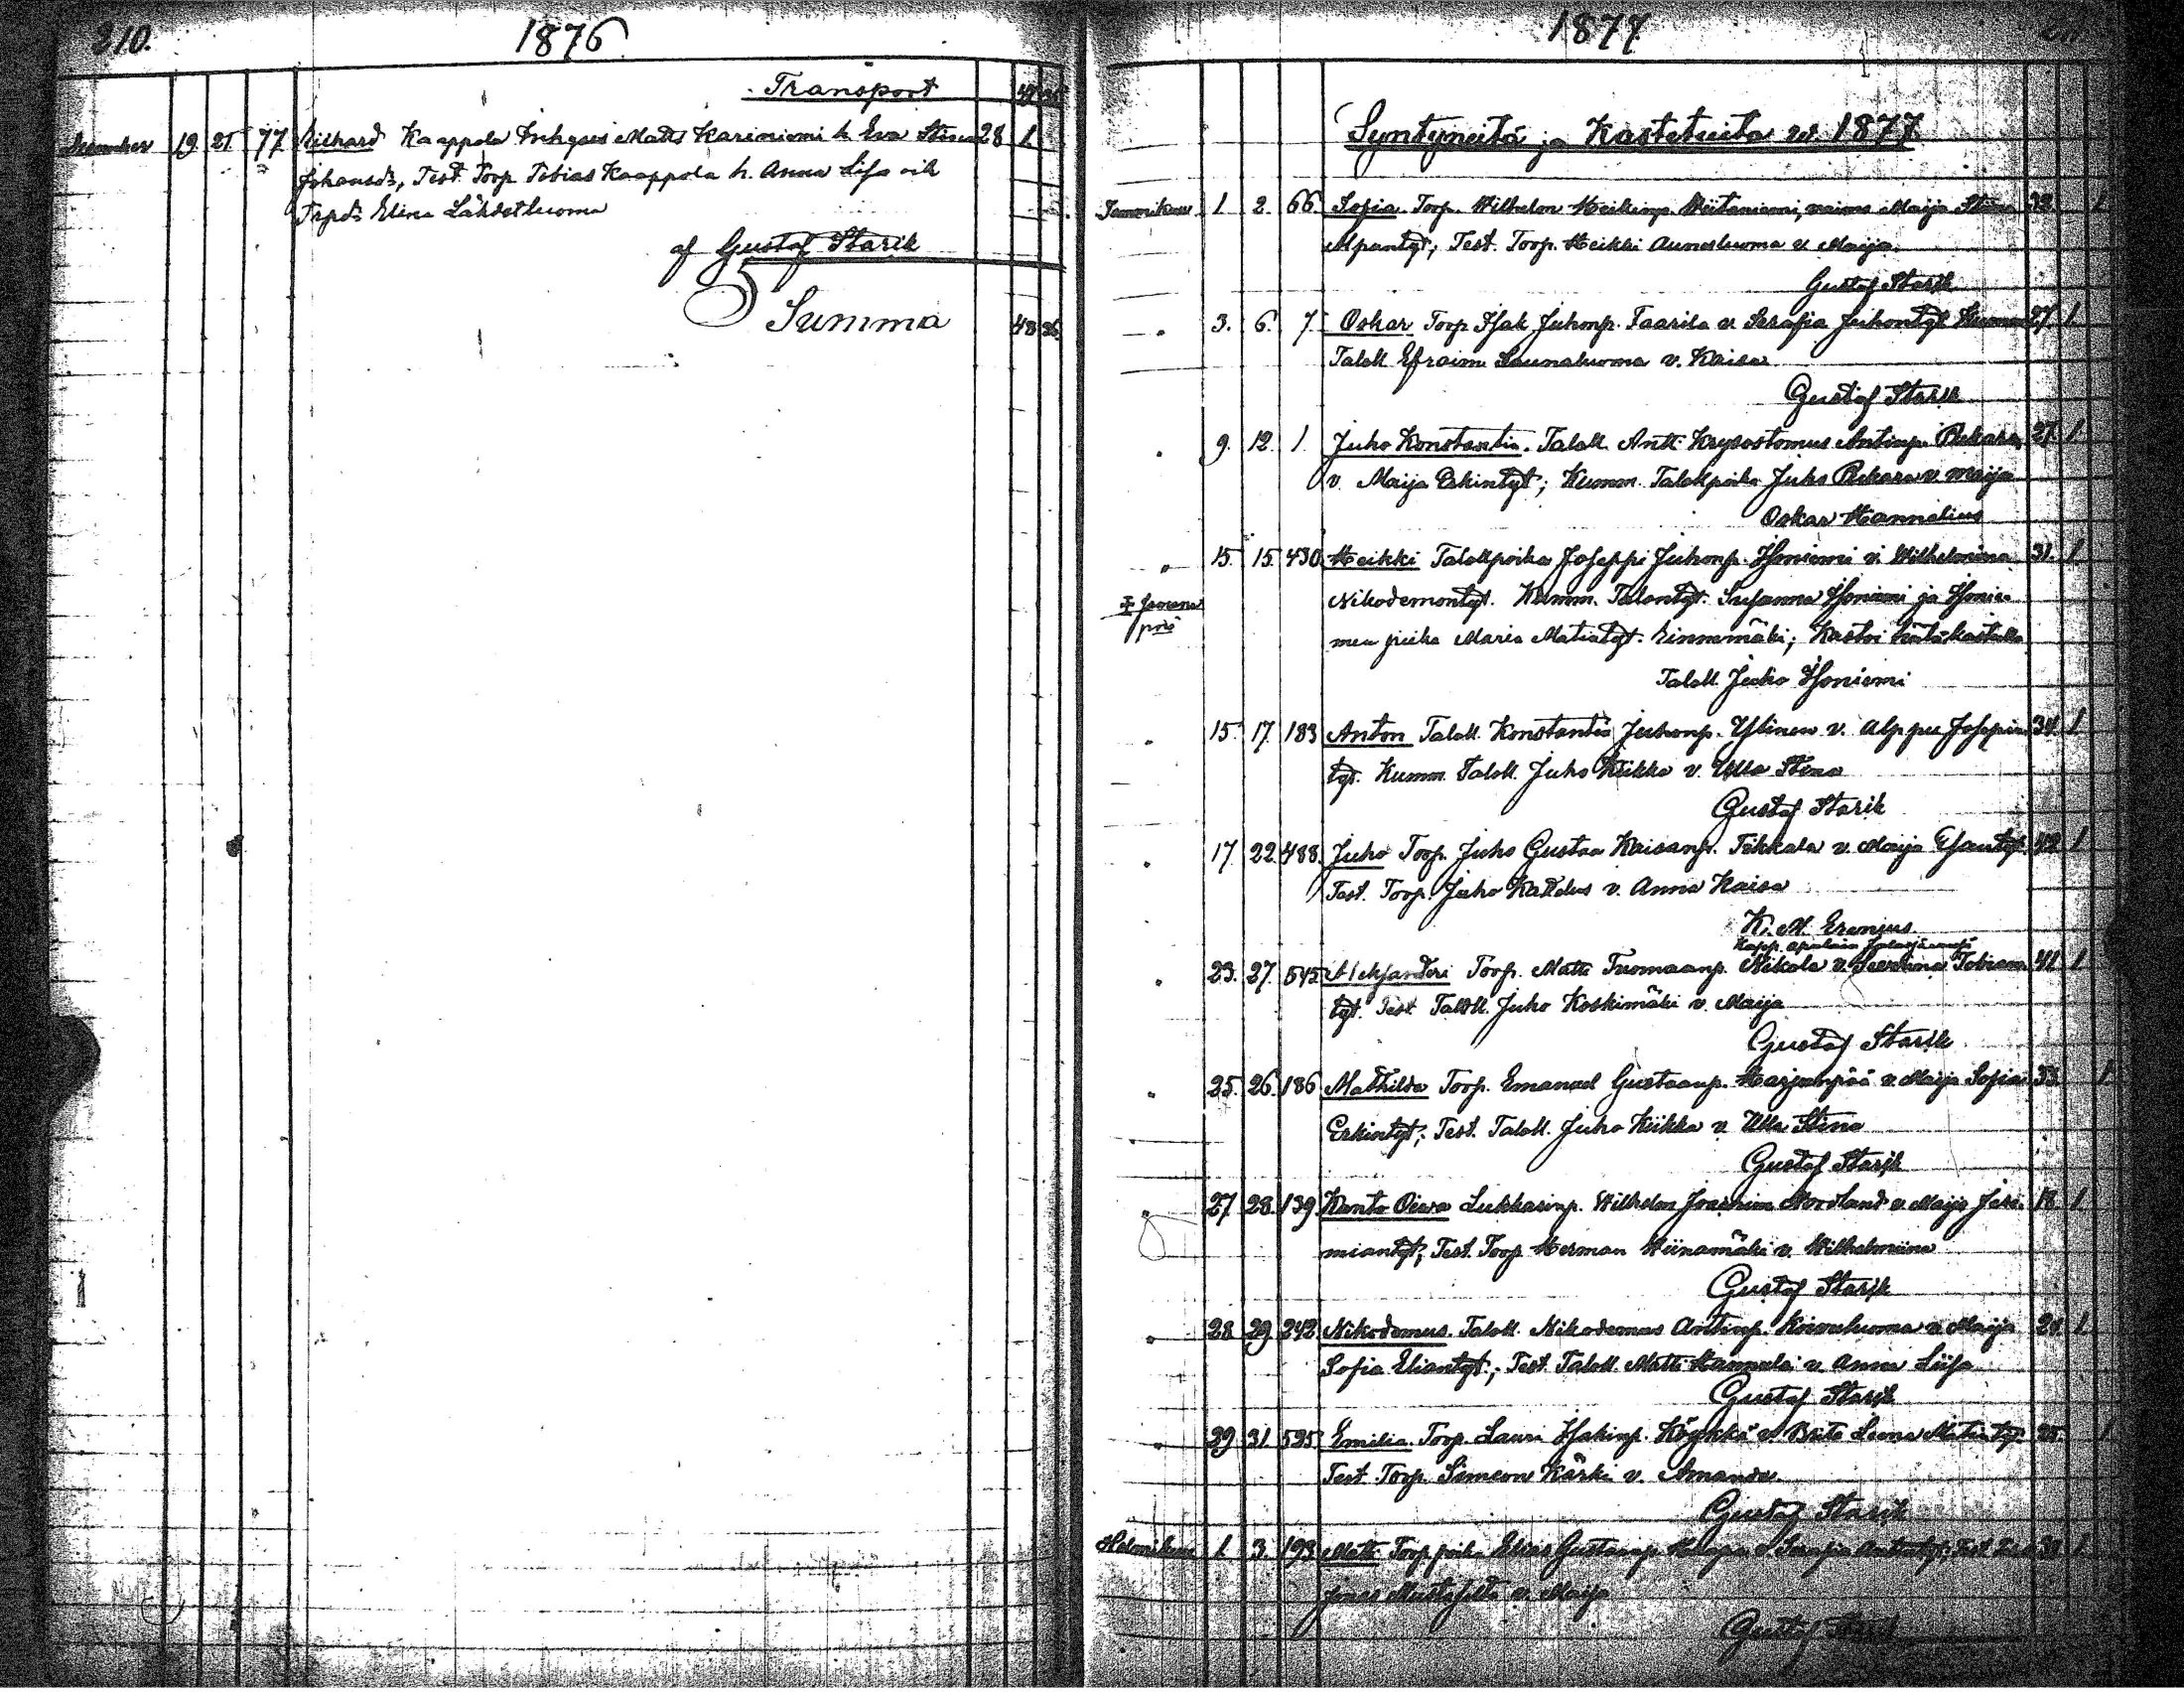 210.
1876
Transport
19 21 77 Richard Kaappola Inhyses Matts Kariniemi h. Eva Stina 28 1
Johansdr, Test. Torp. Tobias Kaappola h. Anna Lisa och
Elina Lähdetluoma
af Gustaf Starik
Summa 43 36
1877
Syntyneitä ja Kastetuita v. 1877
Tammikuu 1 2. 66 Sofia Torp. Wilhelm Heikinp. vaimo Maija Stina 1
Test. Torp. Heikki Aunesluoma v. Maija
Gustaf Starik
" 3. 6. 7 Oskar Torp. Isak Juhonp. Taarila v. Serafia Juhontyt. 27 1
Taloll. Efraim Saunaluoma v. Kaisa
Gustaf Starik
" 9. 12. 1 Juho Konstantin. Taloll. Antti Krysostomus Antinp. 27 1
v. Maija Erkintyt; Kumm. Talollpoika Juho v. Maija
Oskar Hannelius
" 15. 15. 430 Heikki Talollpoika Joseppi Juhonp. Isoniemi v. Wilhelmina 31. 1
Nikodemontyt. Kumm. Talontyt. Susanna Isoniemi ja Isonie-
men piika Maria Matintyt. Kastoi hätäkasteella
Taloll. Juho Isoniemi
" 15. 17. 183 Anton Taloll. Konstantin Juhonp. Ylinen v. Alppu Josepin 34. 1
tyt. Kumm. Taloll. Juho Kiikka v. Ulla Stina
Gustaf Starik
" 17. 22. 488. Juho Torp. Juho Gustaa Kaisanp. Tikkala v. Maija 42 1
Test. Torp. Juho v. Anna Kaisa
K. M. Eranius
Kapp. apulain.
" 23. 27. 545 Aleksanderi Torp. Matti Tuomaanp. Nikola v. Tobiaan 41 1
tyt. Test. Taloll. Juho Koskimäki v. Maija
Gustaf Starik
" 25. 26. 186 Mathilda Torp. Emanuel Gustaanp. Harjunpää v. Maija Sofia 33 1
Erkintyt; Test. Taloll. Juho Kiikka v. Ulla Stina
Gustaf Starik
" 27. 28. 139 Kanto Oiva Lukkarinp. Wilhelm Joachim Nordlund v. Maija Jere- 18. 1
miantyt; Test. Torp. Herman Wiinamäki v. Wilhelmiina
Gustaf Starik
" 28 29 242 Nikodemus. Taloll. Nikodemus Antinp. Koivuluoma v. Maija 24 1
Sofia Eliantyt; Test. Taloll. Matti Hannula v. Anna Liisa
Gustaf Starik
" 29 31. 525 Emilia. Torp. Lauri Isakinp. Köykkä v. Brita Leena Matintyt. 25 1
Test. Torp. Simeon Kärki v. Amanda
Gustaf Starik
Helmikuu 1. 3. 193 Matti Torppoika Elias Gustaanp. 1
Jonas v. Maija
Gustaf Starik